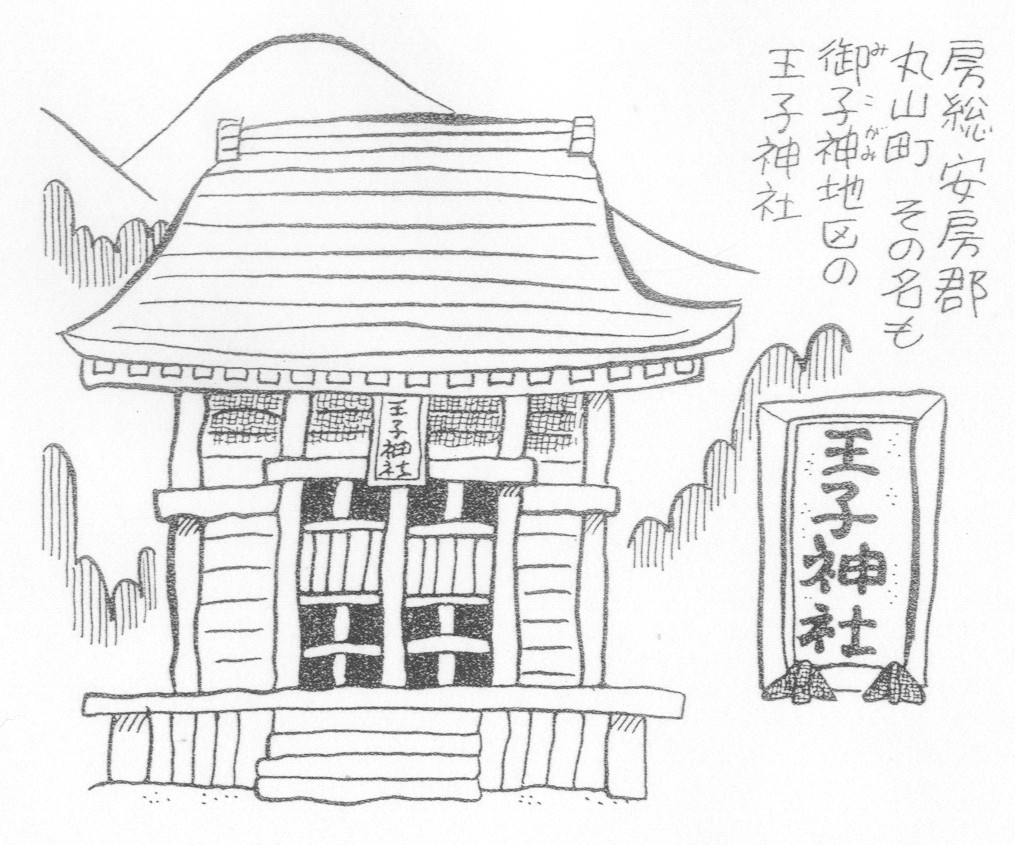 房総安房郡
丸山町 その名も
御子神地区の
みこがみ
王子神社
王子神社
王子神社